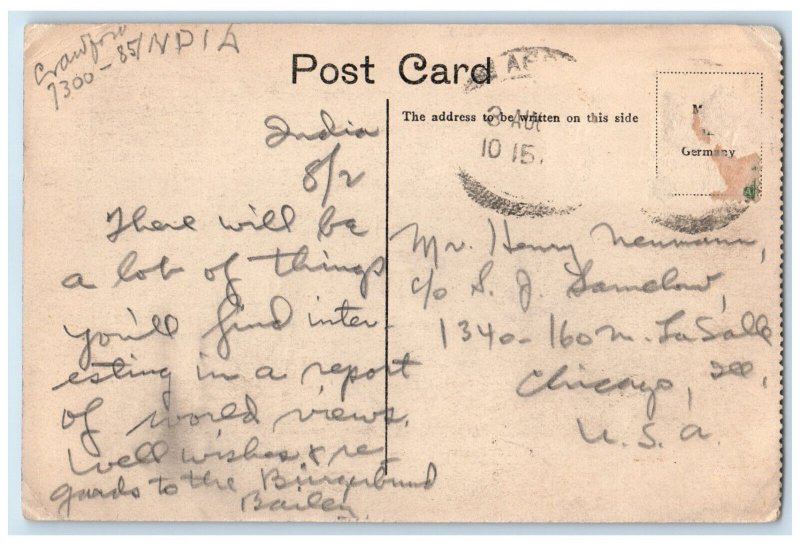 Crawford
7300-85/
INDIA
Post Card
The address to be written on this side
3 AU
10 15.
M
Germany
India
8/2
There will be
a lot of things
you'll find inter-
esting in a report
of world views.
Well wishes & re-
gards to the Bürgerbund
Bailey
Mr. Henry Neumann,
c/o S. J.
1340-160 N. LaSalle
Chicago, Ill,
U.S.A.